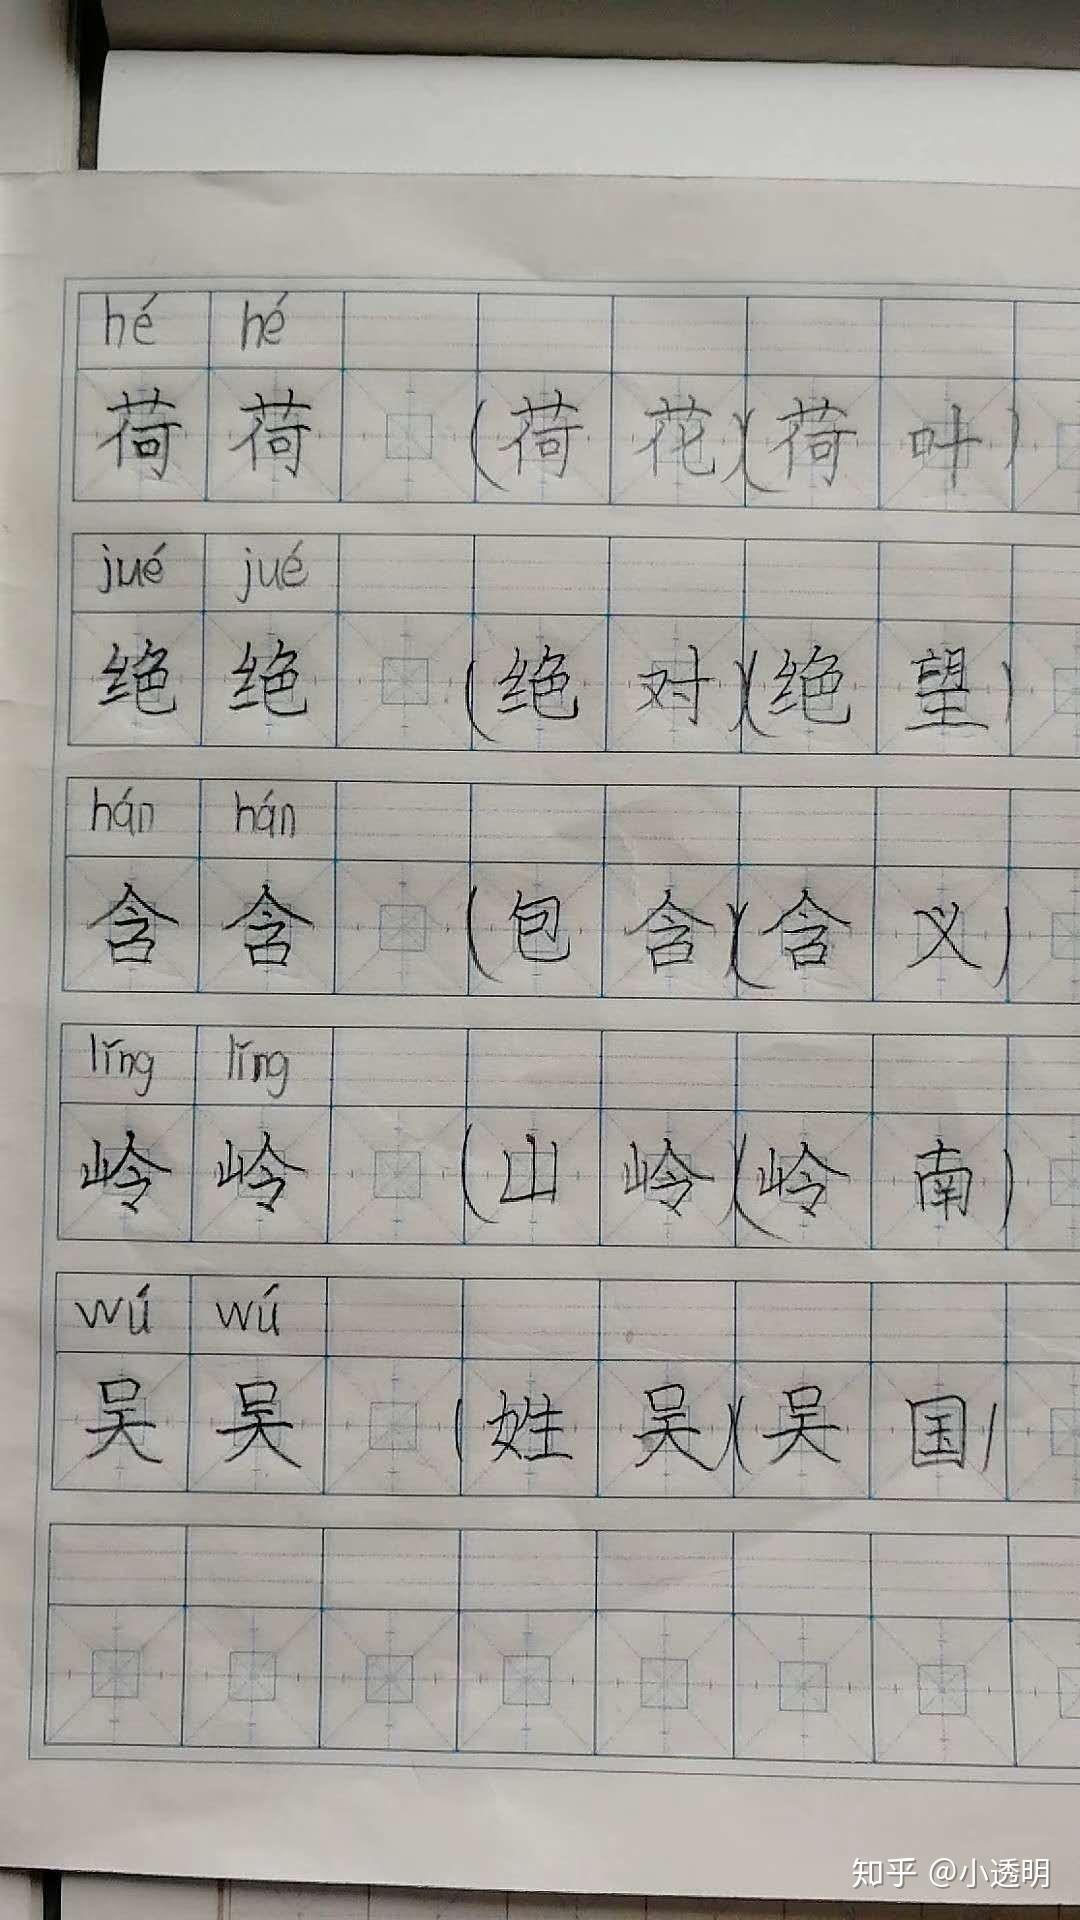 hé hé
荷 荷 (荷 花)(荷 叶)
jué jué
绝 绝 (绝 对)(绝 望)
hán hán
含 含 (包 含)(含 义)
lǐng lǐng
岭 岭 (山 岭)(岭 南)
wú wú
吴 吴 (姓 吴)(吴 国)
知乎 @小透明